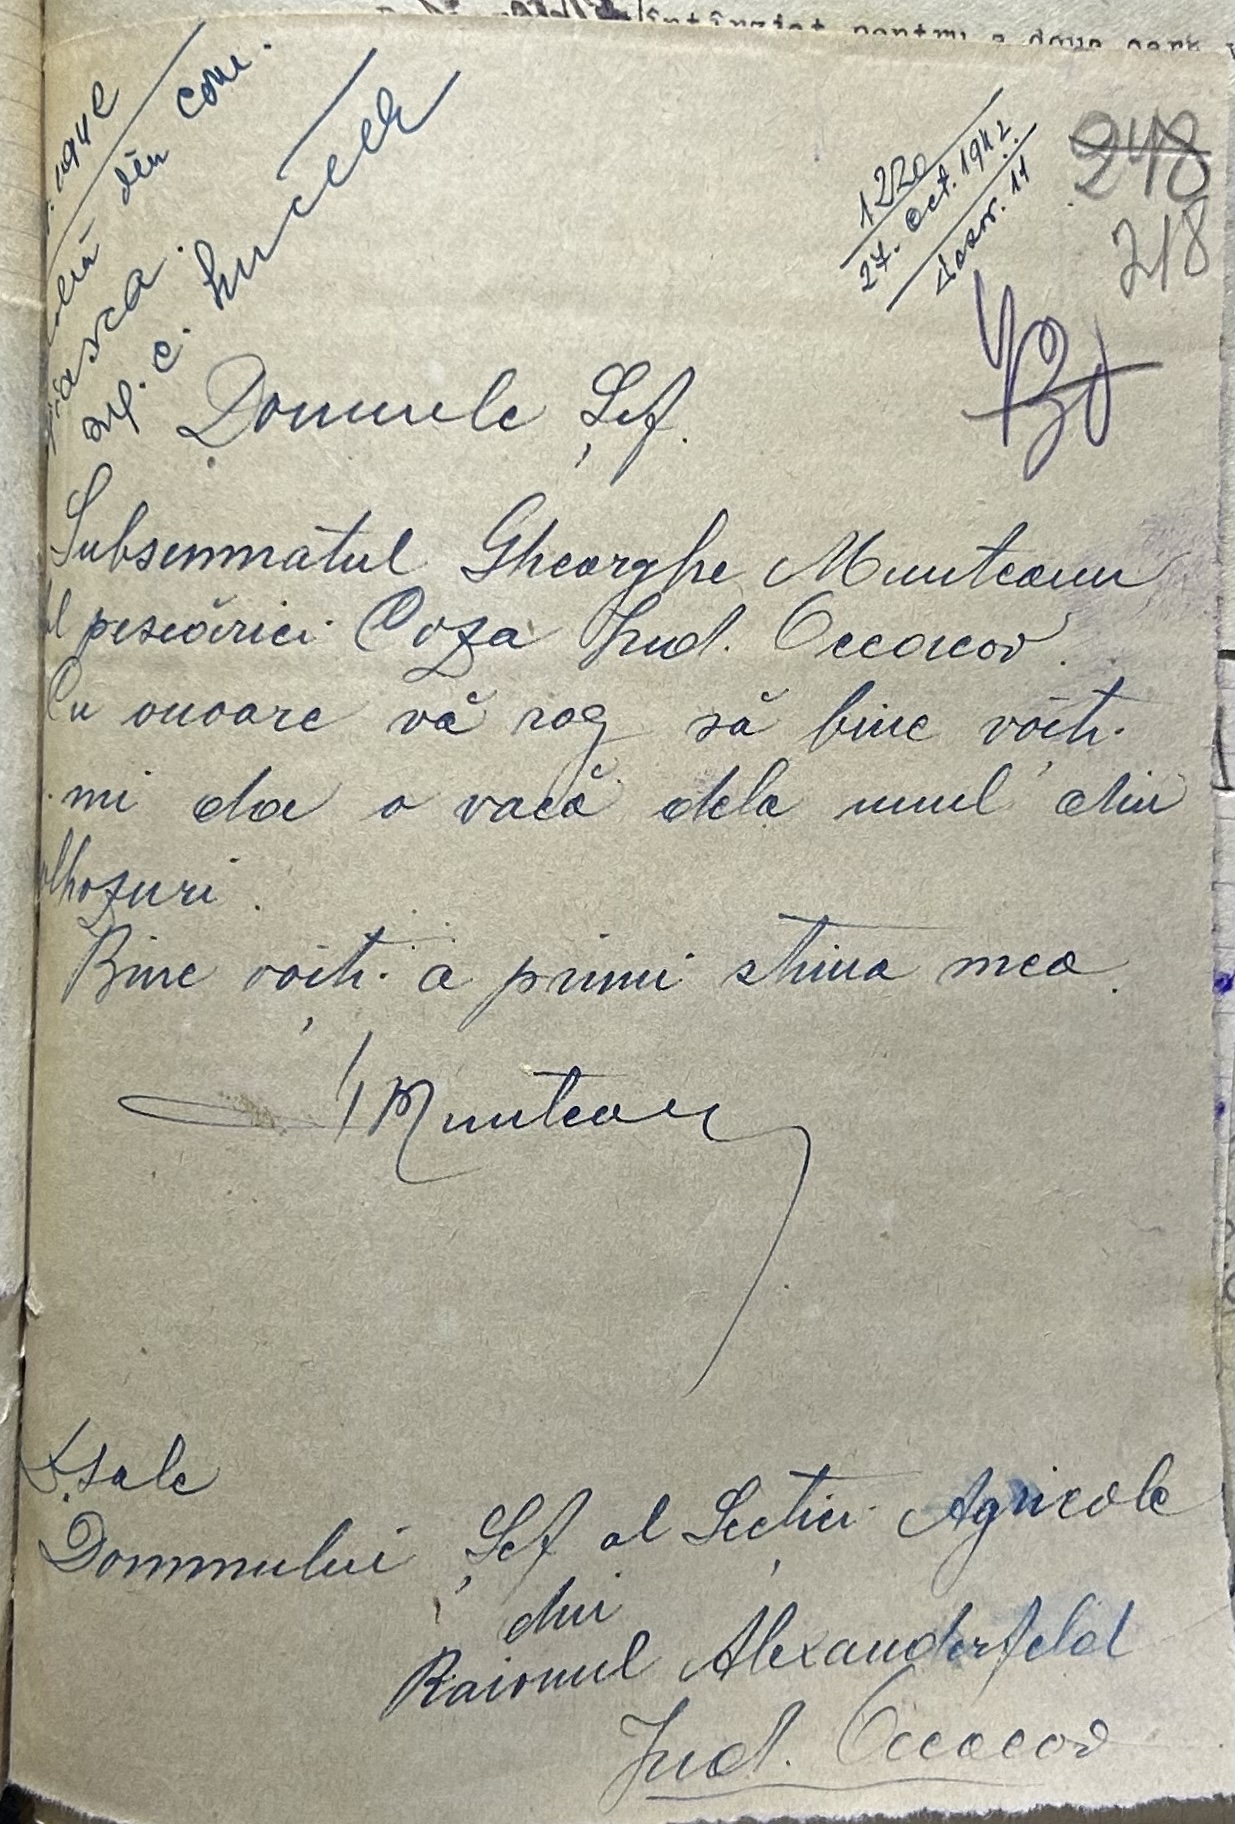 1942
din com.
1220
27. Oct. 1942
Dosar. 11
248
218
Domnule Șef.
Subsemnatul Gheorghe Munteanu
al pescăriei Coza Jud. Oceacov.
Cu onoare vă rog să bine voiți.
mi da o vacă dela unul din
colhozuri.
Bine voiți a primi stima mea.
Munteanu
D.sale
Domnului Șef al Secției Agricole
din
Raionul Alexanderfeld
Jud. Oceacov